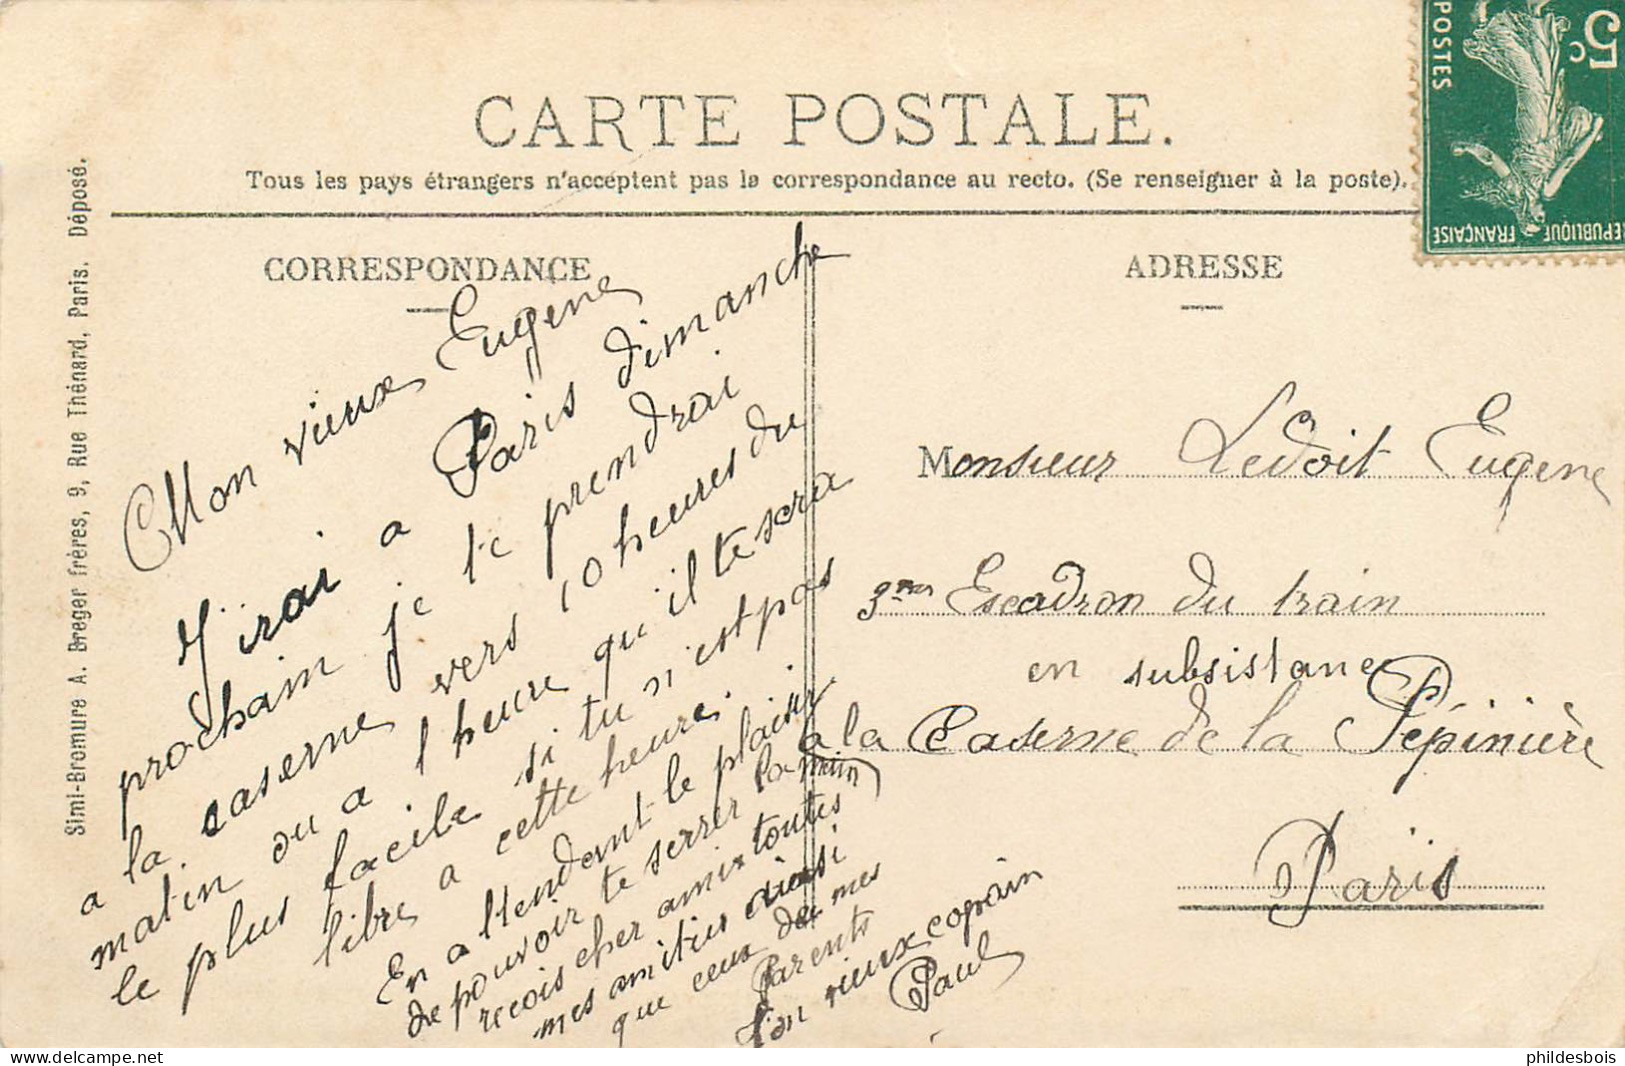 CARTE POSTALE.
Tous les pays étrangers n'acceptent pas la correspondance au recto. (Se renseigner à la poste).
Simi-Bromure A. Breger frères, 9, Rue Thénard, Paris. Déposé.
CORRESPONDANCE
Mon vieux Eugène
J'irai a Paris dimanche
prochain je te prendrai
a la caserne vers 10 heures du
matin ou a l'heure qu'il te sera
le plus facile si tu n'est pas
libre a cette heure.
En attendant le plaisir
de pouvoir te serrer la main
recois cher ami toutes
mes amitiés ainsi
que ceux de mes
Parents
Ton vieux copain
Paul
ADRESSE
Monsieur Ledoit Eugene
3me Escadron du train
en subsistance
a la Caserne de la Pépinière
Paris
5c
POSTES
REPUBLIQUE FRANÇAISE
phildesbois